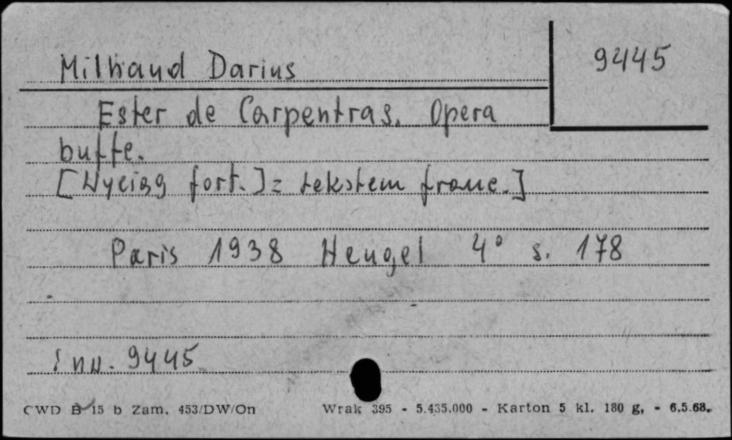 Milhaud Darius
9445
Ester de Carpentras. Opera
buffe.
[Wyciąg fort.] z tekstem franc.]
Paris 1938 Heugel 4° s. 178
inw. 9445
CWD B 15 b Zam. 453/DW/On Wrak 395 - 5.435.000 - Karton 5 kl. 180 g. - 6.5.68.